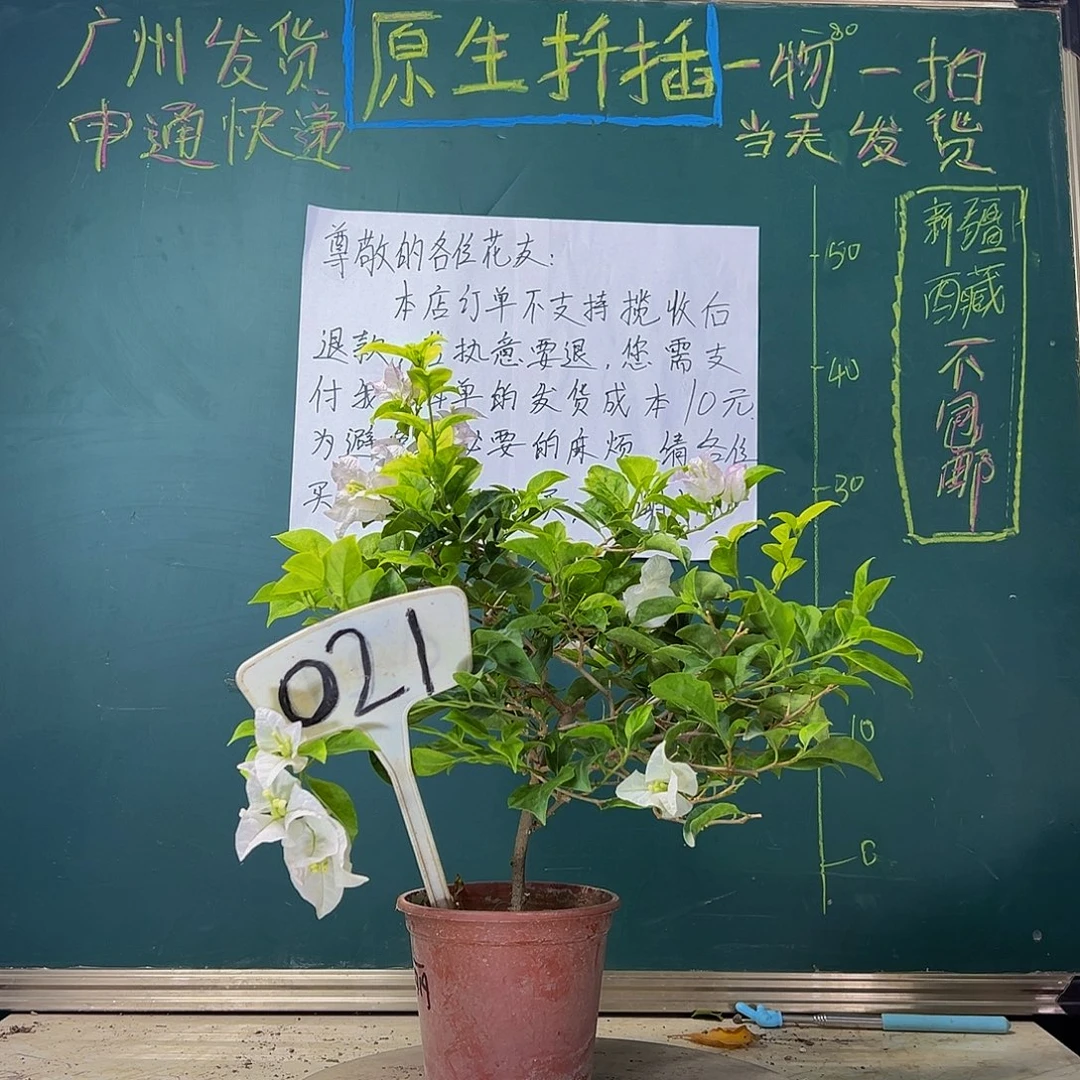 广州发货
申通快递
原生扦插
一物一拍
当天发货
80
尊敬的各位花友:
本店订单不支持揽收后
退款 执意要退,您需支
付 单的发货成本10元.
为避 必要的麻烦 请各位
买
50
40
30
10
0
新疆
西藏
不
包
邮
021